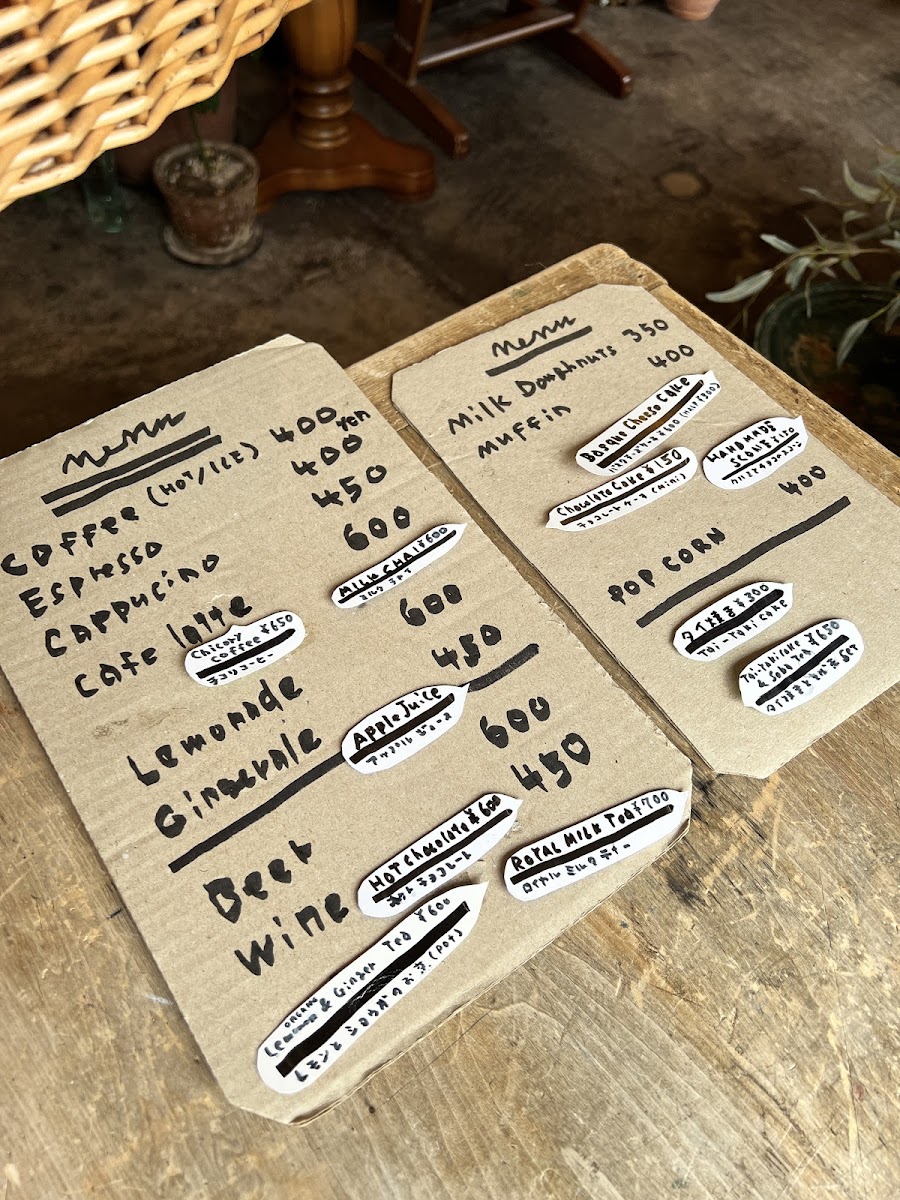 menu
coffee (HOT/ICE) 400 yen
Espresso 400
Cappucino 450
cafe latte 600
MILK CHAI ¥600
ミルク チャイ
Chicory
coffee ¥650
チコリコーヒー
Lemonade 600
Gingerale 450
Apple Juice
アップル ジュース
Beer 600
Wine 450
HOT Chocolate ¥600
ホット チョコレート
ROYAL MILK Tea ¥700
ロイヤル ミルク ティー
ORGANIC
Lemon & Ginger Tea ¥600
レモンとショウガのお茶 (Pot)
menu
Milk Doughnuts 350
muffin 400
Basque Cheese Cake
バスクチーズケーキ ¥600
Chocolate Cake ¥150
チョコレートケーキ (Mini)
HANDMADE
SCONE
POP CORN 400
タイ焼き ¥300
Tai-Yaki cake
Tai-Yaki cake
& Soba Tea ¥650
タイ焼きとそば茶 Set